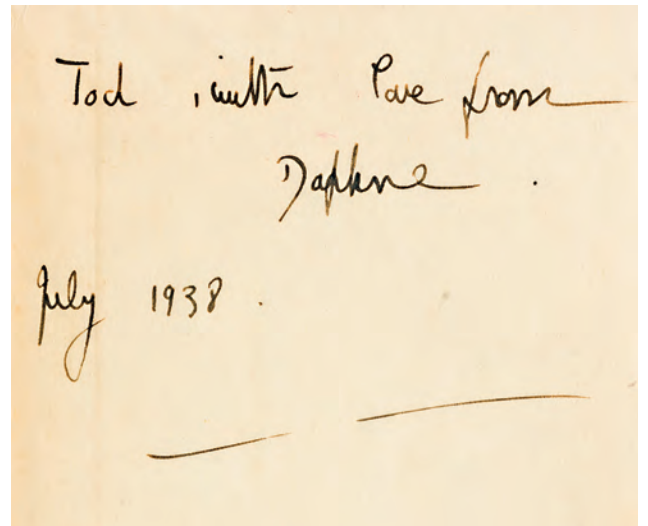 Tod , with love from
Daphne .
July 1938 .